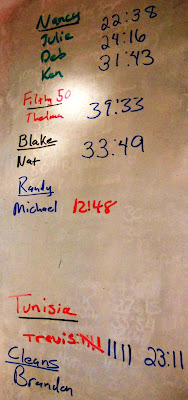 Nancy 22:38
Julie 24:16
Deb 31:43
Ken
Filthy 50
Thelma 39:33
Blake
Nat 33:49
Randy
Michael 12:48
Tunisia
Travis 23:11
Cleans
Brandon